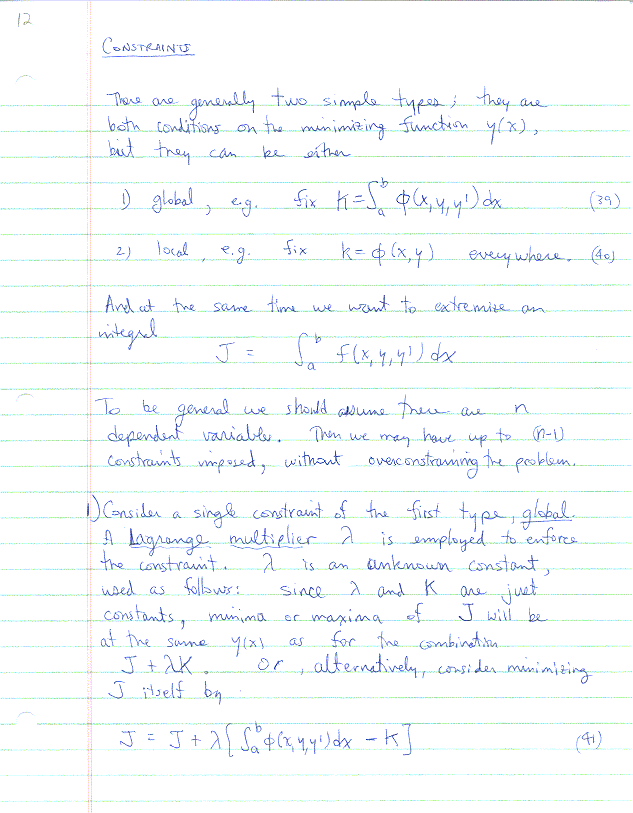 12
CONSTRAINTS
There are generally two simple types; they are
both conditions on the minimizing function y(x),
but they can be either
1) global, e.g. fix K = ∫_a^b φ(x,y,y')dx (39)
2) local, e.g. fix k = φ(x,y) everywhere. (40)
And at the same time we want to extremise an
integral
J = ∫_a^b f(x,y,y')dx
To be general we should assume there are n
dependent variables. Then we may have up to (n-1)
constraints imposed, without overconstraining the problem.
1) Consider a single constraint of the first type, global.
A Lagrange multiplier λ is employed to enforce
the constraint. λ is an unknown constant,
used as follows: since λ and K are just
constants, minima or maxima of J will be
at the same y(x) as for the combination
J + λK. Or, alternatively, consider minimizing
J itself by
J = J + λ[∫_a^b φ(x,y,y')dx - K] (41)